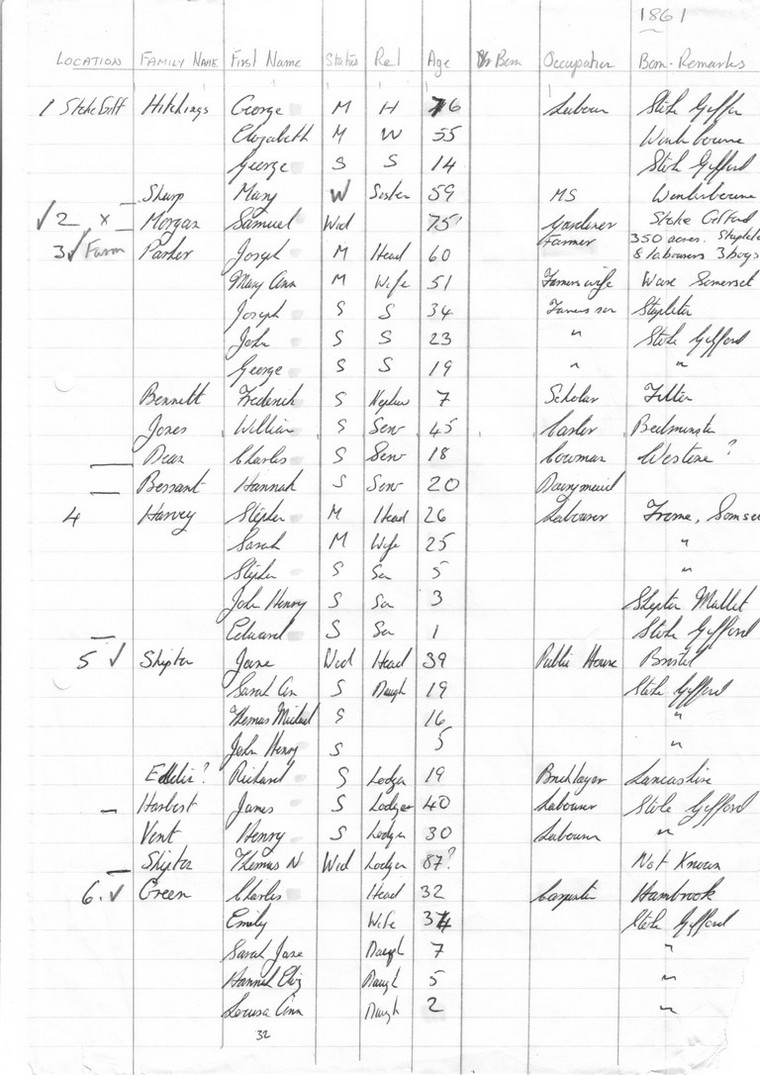 1861
LOCATION FAMILY NAME First Name Status Rel Age Yr Born Occupation Born-Remarks
1 Stoke Giff Hitchings George M H 76 Labour Stoke Giffor
Elizabeth M W 55 Winterbourne
George S S 14 Stoke Gifford
Sharp Mary W Sister 59 MS Winterbourne
√2 x Morgan Samuel Wid 75? Gardener Stoke Gifford
3√ Farm Parker Joseph M Head 60 Farmer 350 acres. Stapleton
8 labourers 3 boys
Mary Ann M Wife 51 Farmers wife Ware Somerset
Joseph S S 34 Farmers son Stapleton
John S S 23 " Stoke Gifford
George S S 19 " "
Bennett Frederick S Nephew 7 Scholar Filton
Jones William S Serv 45 Carter Bedminster
Dean Charles S Serv 18 Cowman Westone ?
Bessant Hannah S Serv 20 Dairymaid
4 Harvey Stephen M Head 26 Labourer Frome, Somse
Sarah M Wife 25 "
Stephen S Son 5 "
John Henry S Son 3 Shepton Mallet
Edward S Son 1 Stoke Gifford
5 √ Shipton Jane Wid Head 39 Public House Bristol
Sarah An S Daugh 19 Stoke Gifford
Thomas Michael S 16 "
John Henry S 5 "
? Richard S Lodger 19 Bricklayer Lancashire
Harbert James S Lodger 40 Labourer Stoke Gifford
Vent Henry S Lodger 30 Labourer "
Shipton Thomas N Wid Lodger 87? Not Known
6. √ Green Charles Head 32 Carpenter Hambrook
Emily Wife 34 Stoke Gifford
Sarah Jane Daugh 7 "
Hannah Eliz Daugh 5 "
Louisa Ann Daugh 2 "
32